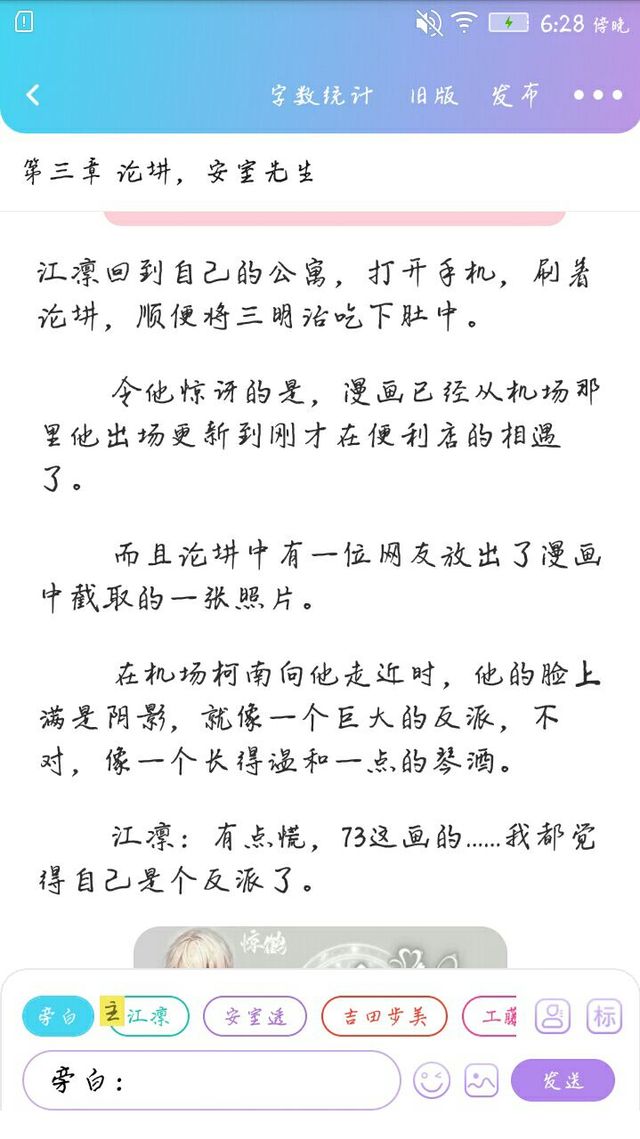 6:28 傍晚
字数统计 旧版 发布
第三章 论坛，安室先生
江凛回到自己的公寓，打开手机，刷着
论坛，顺便将三明治吃下肚中。
令他惊讶的是，漫画已经从机场那
里他出场更新到刚才在便利店的相遇
了。
而且论坛中有一位网友放出了漫画
中截取的一张照片。
在机场柯南向他走近时，他的脸上
满是阴影，就像一个巨大的反派，不
对，像一个长得温和一点的琴酒。
江凛：有点慌，73这画的……我都觉
得自己是个反派了。
惊鹤
旁白 主 江凛 安室透 吉田步美 工藤 标
旁白：
发送